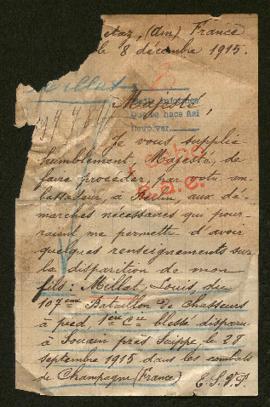 (Ain) France
le 8 décembre 1915.
Majesté,
Je vous supplie
humblement, Majesté, de
faire procéder, par votre am-
bassadeur, à Berlin, aux dé-
marches nécessaires qui pour-
raient me permettre d'avoir
quelques renseignements sur
la disparition de mon
fils: Millet, Louis, du
107ème Bataillon de Chasseurs
à pied 1ère Cie blessé, disparu
à Souain près Suippe, le 28
septembre 1915 dans les combats
de Champagne (France)